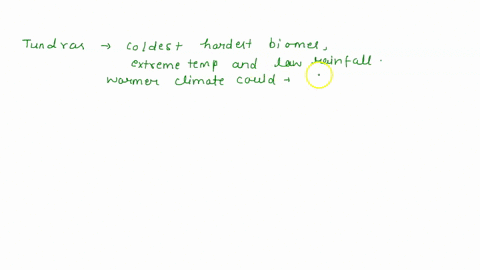 Tundras → coldest hardest biomes,
extreme temp and low rainfall.
warmer climate could →